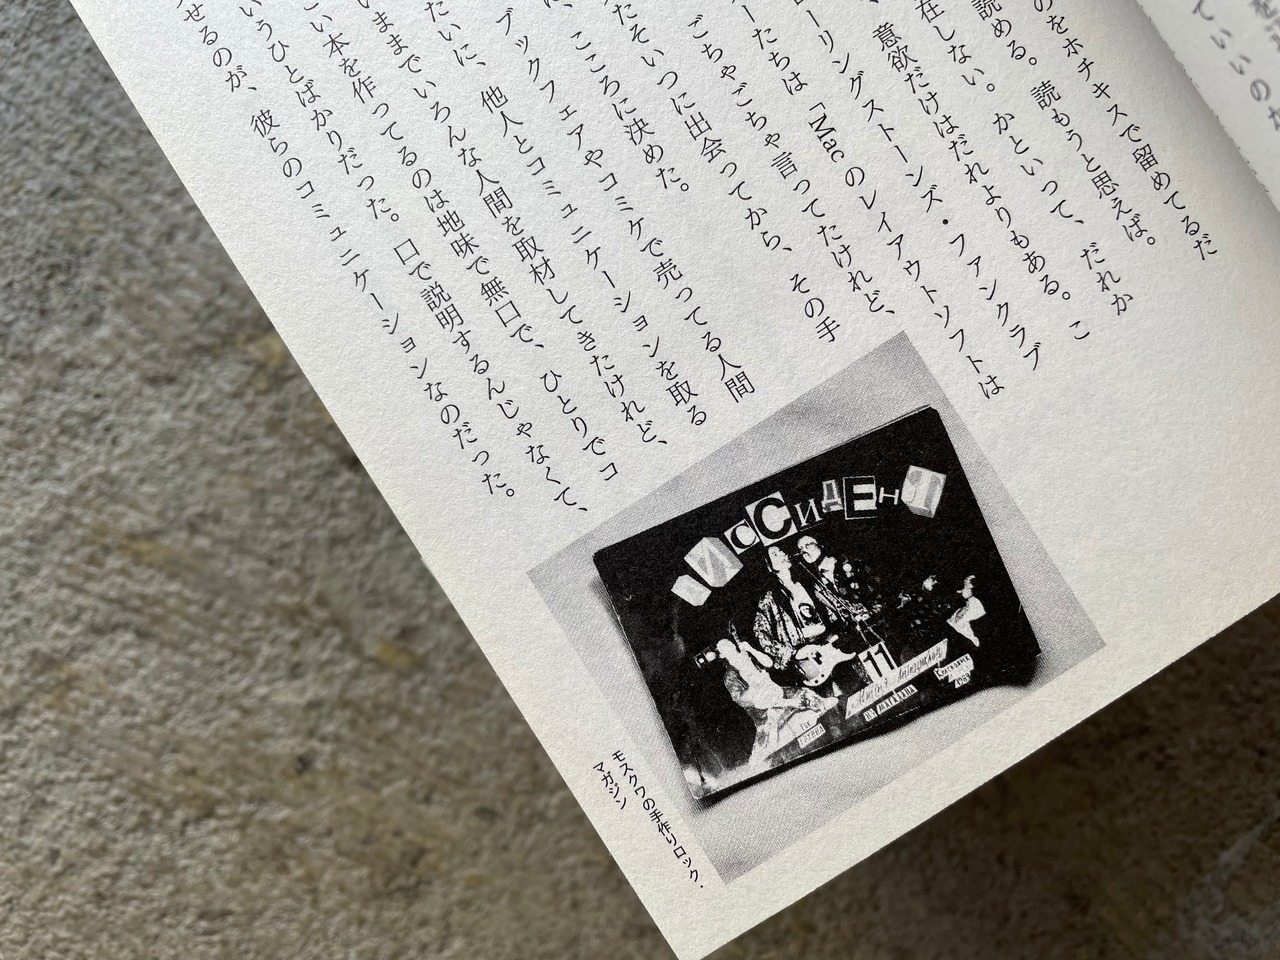 ていいのだ
のをホチキスで留めてるだ
読める。読もうと思えば。
在しない。かといって、だれか
意欲だけはだれよりもある。こ
ーリングストーンズ・ファンクラブ
ーたちは「Macのレイアウトソフトは
ごちゃごちゃ言ってたけれど、
たそいつに出会ってから、その手
、こころに決めた。
ブックフェアやコミケで売ってる人間
たいに、他人とコミュニケーションを取る
いままでいろんな人間を取材してきたけれど、
ごい本を作ってるのは地味で無口で、ひとりでコ
いうひとばかりだった。口で説明するんじゃなくて、
せるのが、彼らのコミュニケーションなのだった。
ДИССИДЕНТ
11
モスクワの手作りロック・
マガジン